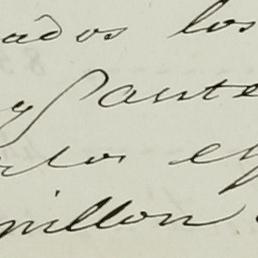 ados los
y Sante
los ey
pillon